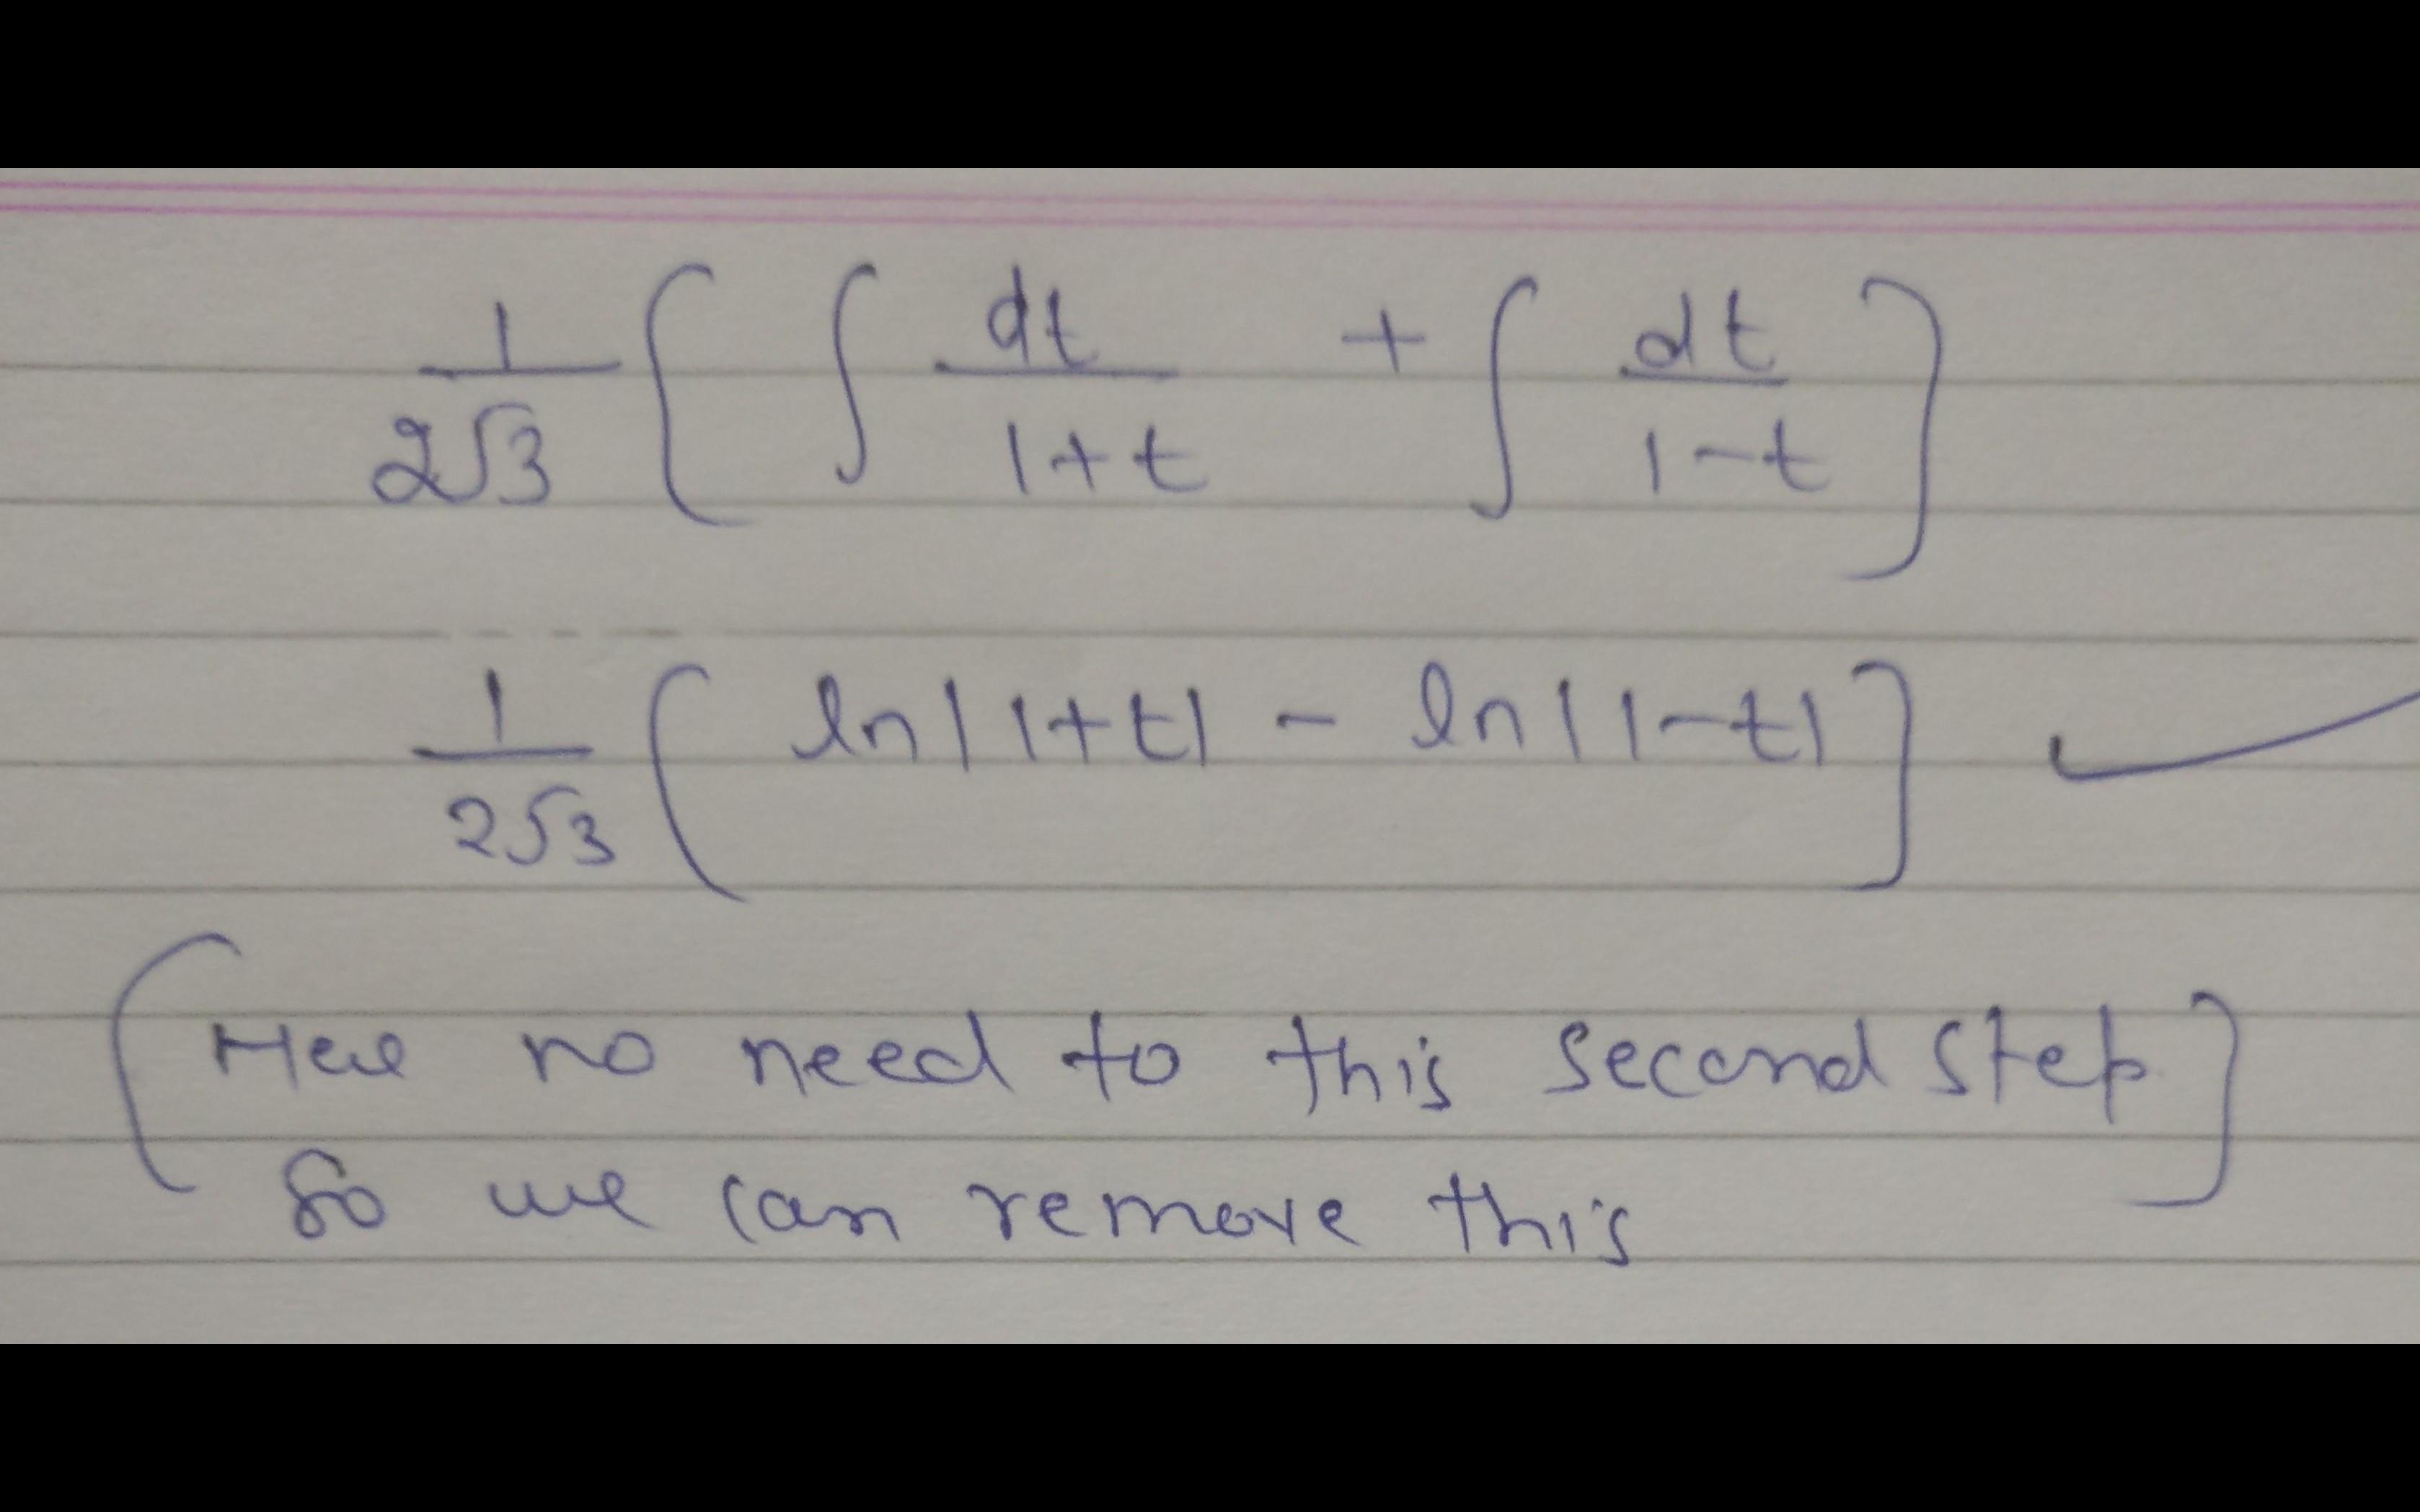 1/2√3 [ ∫ dt/1+t + ∫ dt/1-t ]
1/2√3 ( ln|1+t| - ln|1-t| ] ✓
( Here no need to this second step ]
So we can remove this